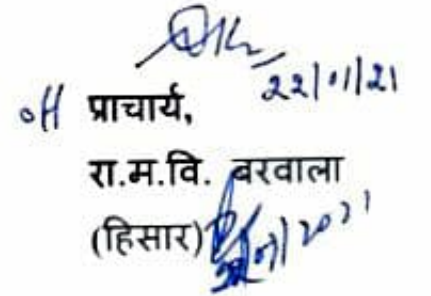 22/01/21
off प्राचार्य,
रा.म.वि. बरवाला
(हिसार)